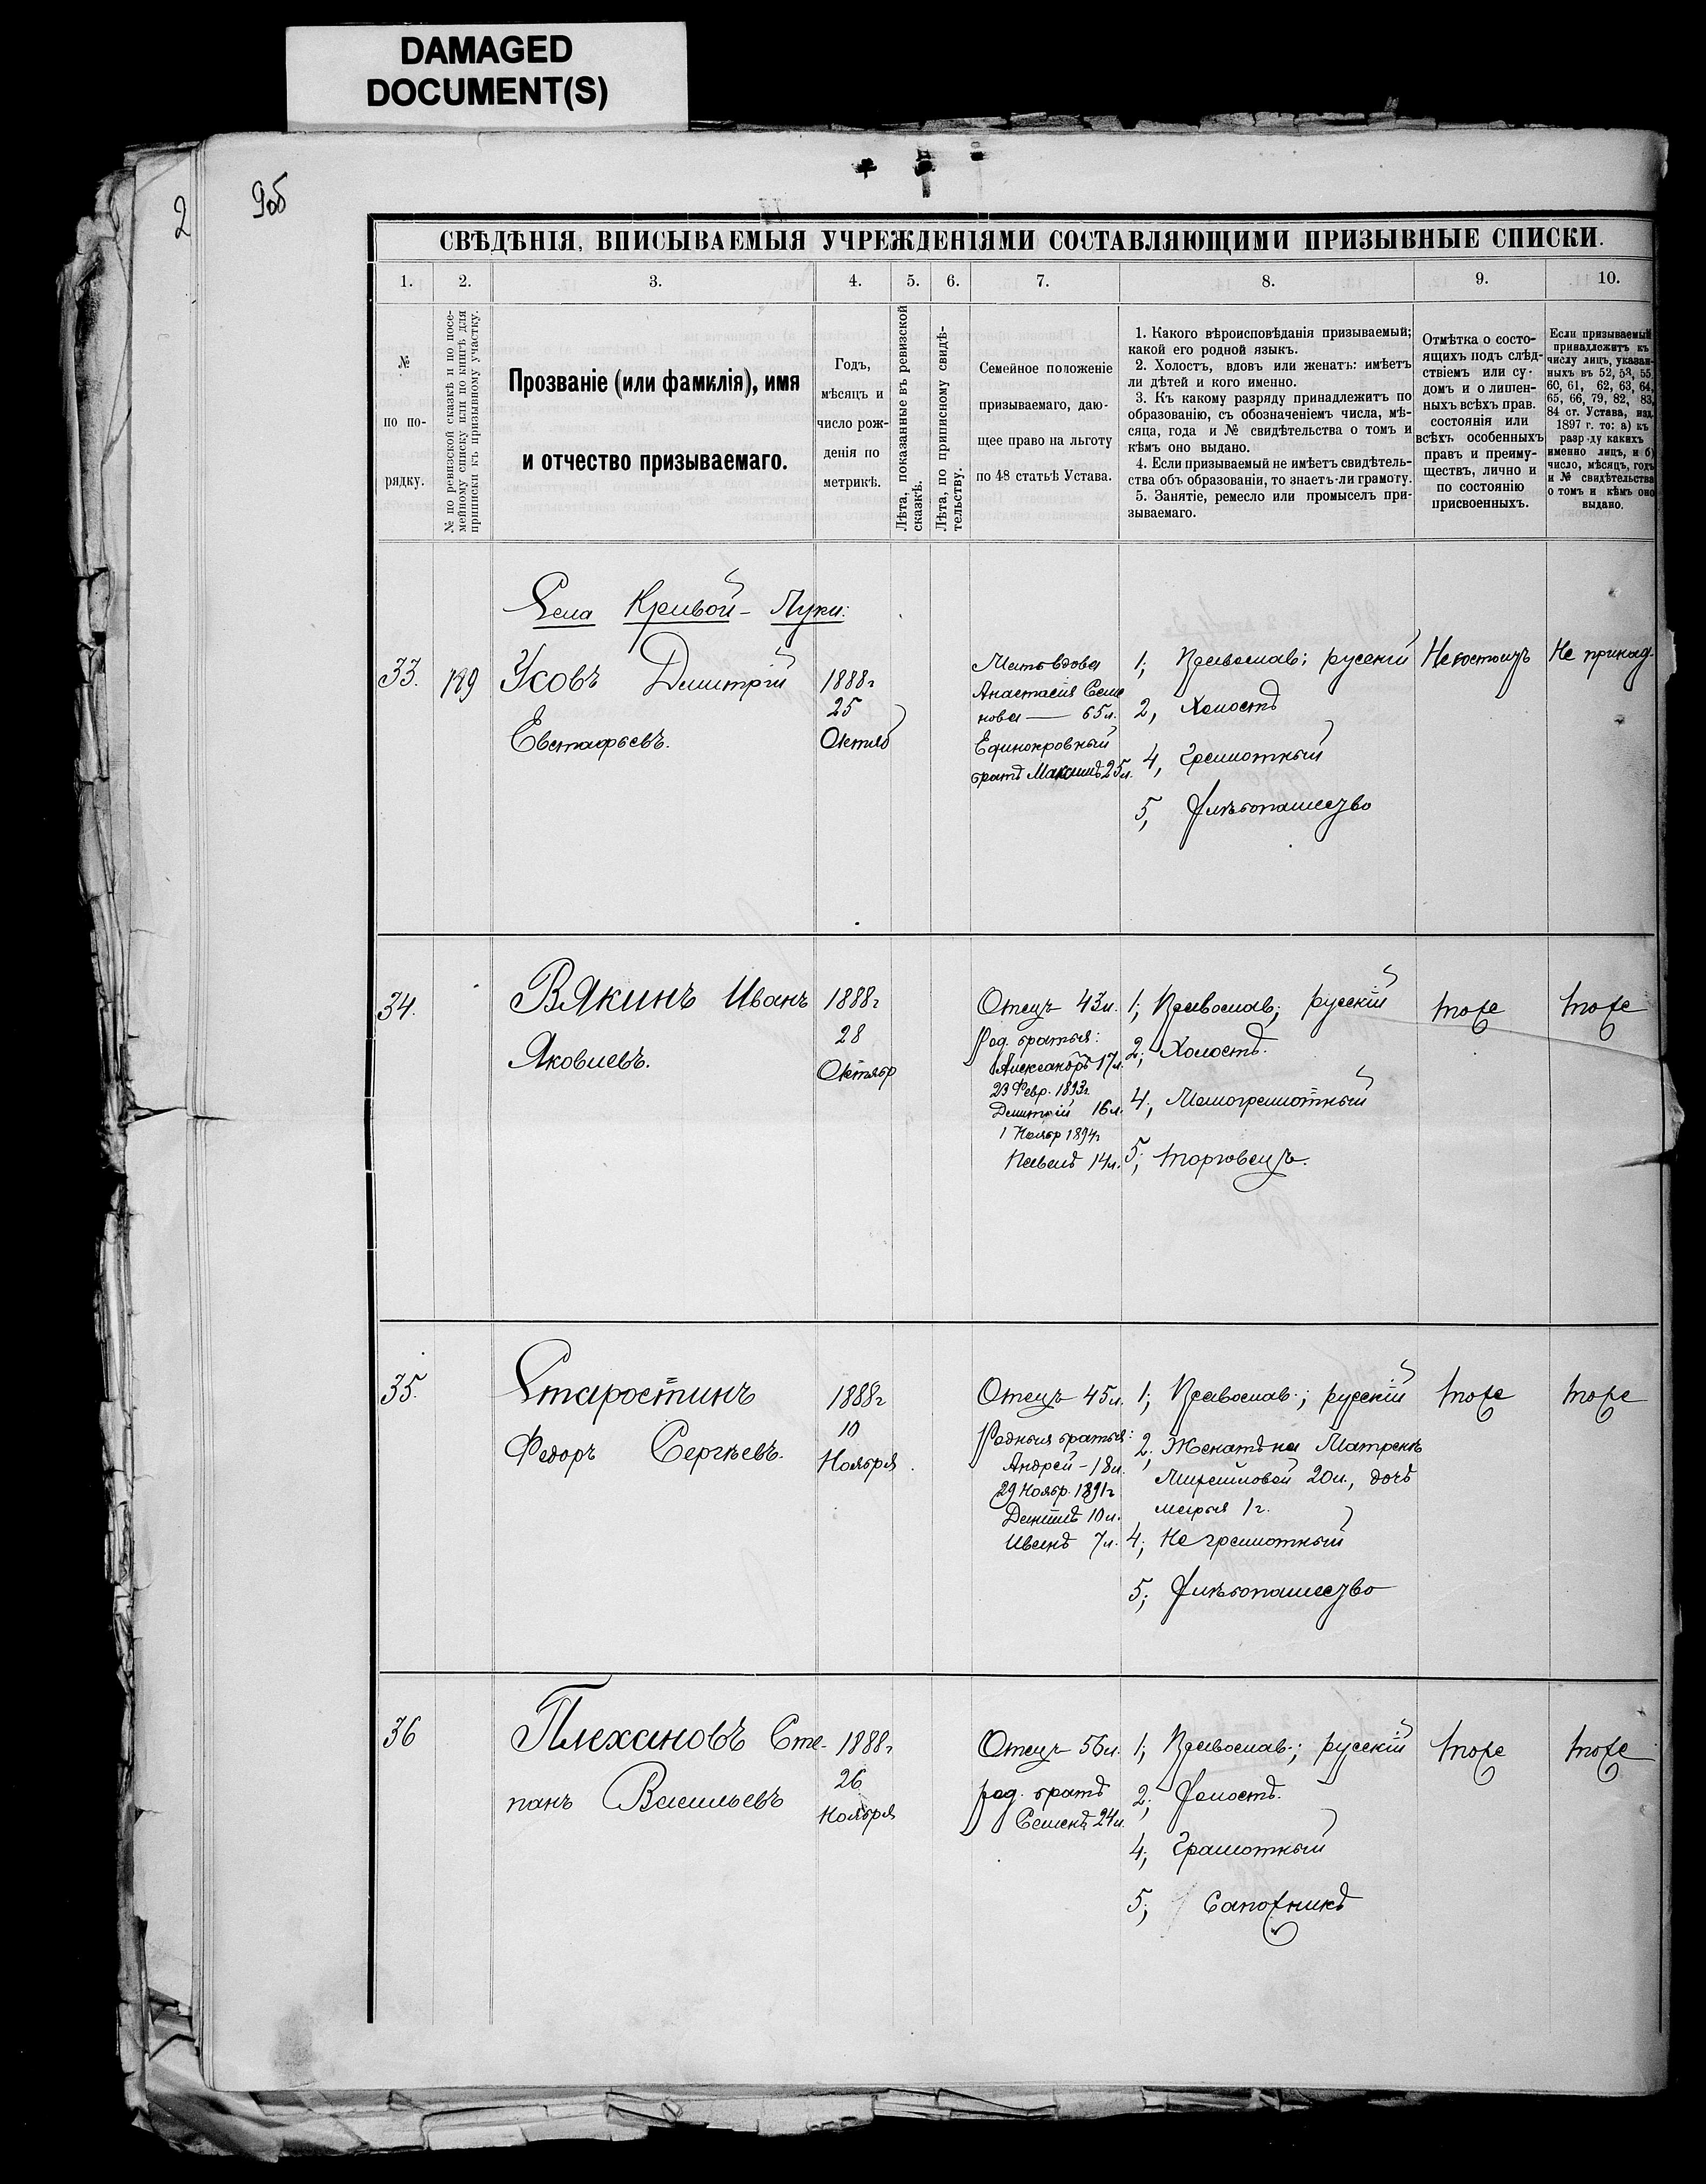 DAMAGED
DOCUMENT(S)
2
9об
СВѢДѢНІЯ, ВПИСЫВАЕМЫЯ УЧРЕЖДЕНІЯМИ СОСТАВЛЯЮЩИМИ ПРИЗЫВНЫЕ СПИСКИ.
1. 2. 3. 4. 5. 6. 7. 8. 9. 10.
№
по по-
рядку.
№ по ревизской сказкѣ и по посе-
мейному списку или по книгѣ для
приписки къ призывному участку.
Прозваніе (или фамилія), имя
и отчество призываемаго.
Годъ,
мѣсяцъ и
число рож-
денія по
метрикѣ.
Лѣта, показанные въ ревизской
сказкѣ.
Лѣта, по приписному свидѣ-
тельству.
Семейное положеніе
призываемаго, даю-
щее право на льготу
по 48 статьѣ Устава.
1. Какого вѣроисповѣданія призываемый;
какой его родной языкъ.
2. Холостъ, вдовъ или женатъ: имѣетъ
ли дѣтей и кого именно.
3. Къ какому разряду принадлежитъ по
образованію, съ обозначеніемъ числа, мѣ-
сяца, года и № свидѣтельства о томъ и
кѣмъ оно выдано.
4. Если призываемый не имѣетъ свидѣтель-
ства объ образованіи, то знаетъ-ли грамоту.
5. Занятіе, ремесло или промыселъ при-
зываемаго.
Отмѣтка о состо-
ящихъ подъ слѣд-
ствіемъ или су-
домъ и о лишен-
ныхъ всѣхъ прав.
состоянія или
всѣхъ особенныхъ
правъ и преиму-
ществъ, лично и
по состоянію
присвоенныхъ.
Если призываемый
принадлежитъ къ
числу лицъ, указан-
ныхъ въ 52, 53, 55,
60, 61, 62, 63, 64,
65, 66, 79, 82, 83,
84 ст. Устава, изд.
1897 г. то: а) къ
разр ду какихъ
именно лицъ, и б)
число, мѣсяцъ, годъ
и № свидѣтельства
о томъ и кѣмъ оно
выдано.
Села Кривой-Луки:
33. 189 Усовъ Димитрій
Евстафьевъ.
1888г
25
Октяб
Мать вдова
Анастасія Семе
нова — 65л.
Единокровный
братъ Максимъ 25л.
1; Православ; русскій
2, Холостъ
4, Грамотный
5, Хлѣбопашество
Не состоитъ
Не принад.
34. Вякинъ Иванъ
Яковлевъ.
1888г
28
Октябр
Отецъ 43л.
Род. братья:
Александръ 17л.
23 Февр. 1893г
Димитрій 16л.
1 Ноябр 1894г
Павелъ 14л.
1; Православ; русскій
2; Холостъ.
4; Малограмотный
5; Торговецъ.
тоже
тоже
35. Старостинъ
Федоръ Сергѣевъ.
1888г
10
Ноября
Отецъ 45л.
Родныя братья:
Андрей - 18л.
29 Ноябр. 1891г
Данилъ 10л.
Иванъ 7л.
1; Православ.; русскій
2; Женатъ на Матренѣ
Михайловой 20л., дочь
Марья 1г.
4; Не грамотный
5; Хлѣбопашество
тоже
тоже
36 Плехановъ Сте-
панъ Васильевъ
1888г
26
Ноября
Отецъ 56л.
род. братъ
Семенъ 24л.
1; Православ.; русскій
2; Холостъ.
4; Грамотный
5; Сапожникъ
тоже
тоже